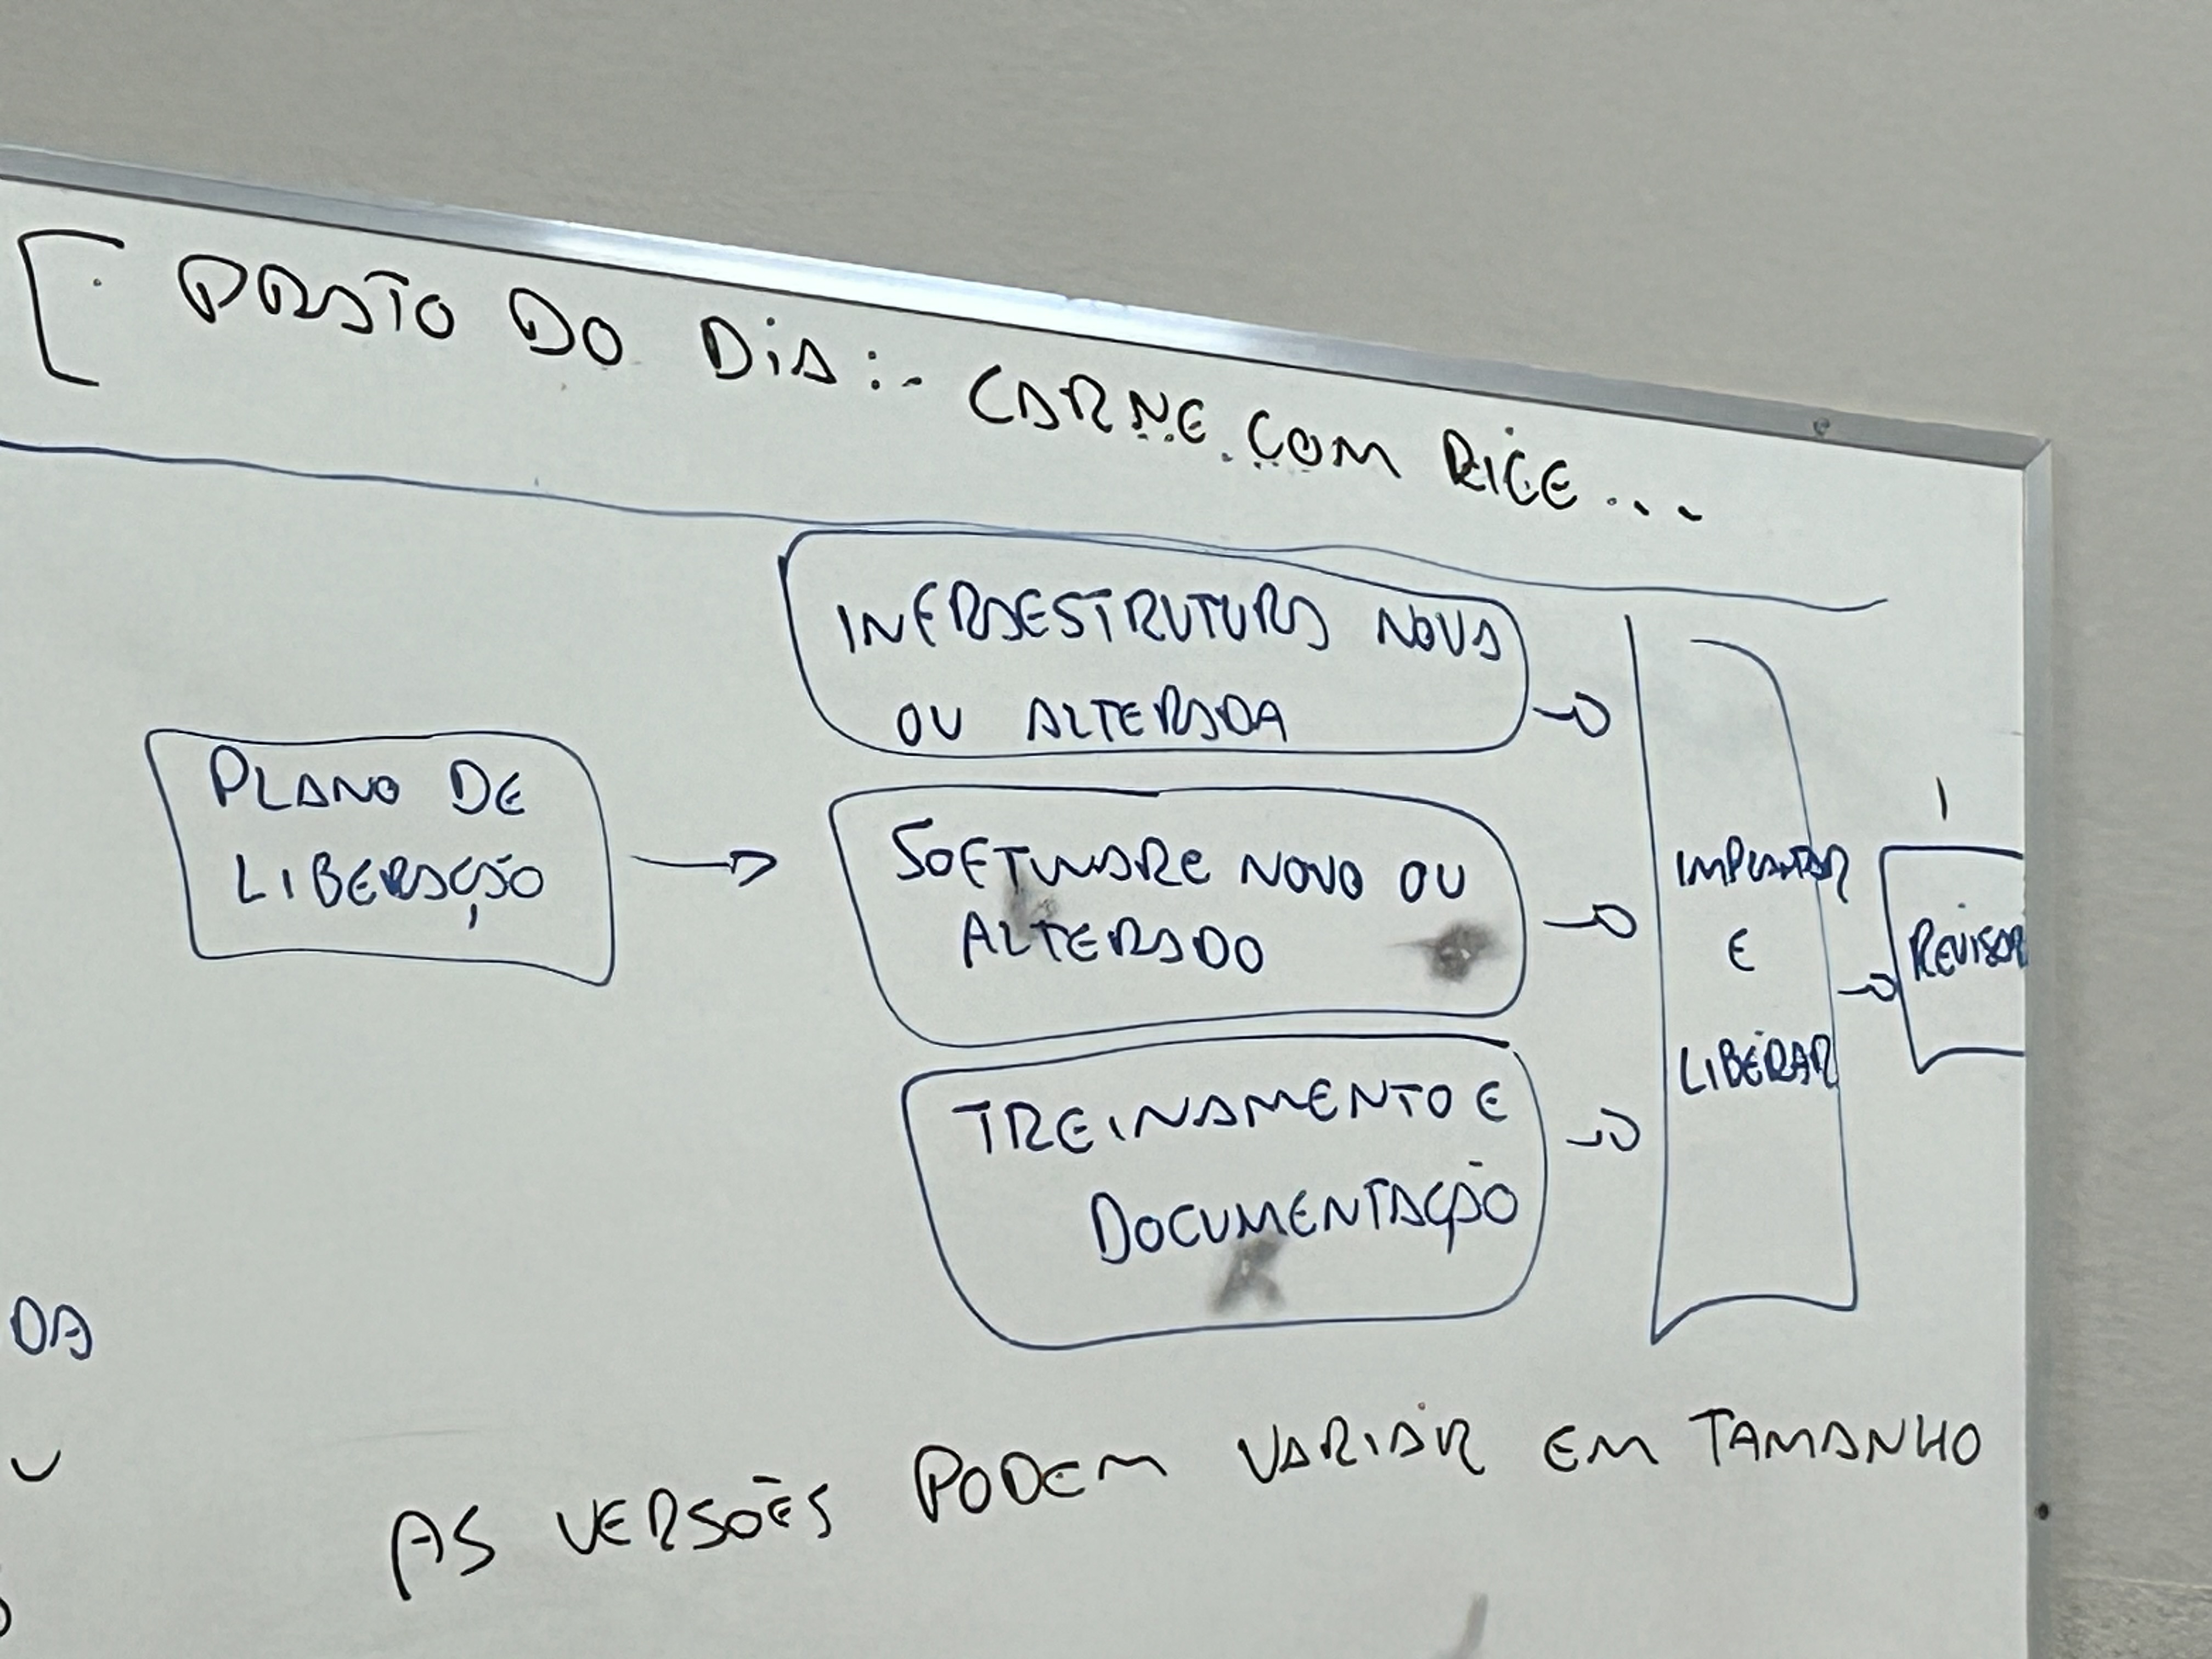 PRATO DO DIA:- CARNE COM RICE...
INFRAESTRUTURA NOVA
OU ALTERADA
PLANO DE
LIBERAÇÃO
SOFTWARE NOVO OU
ALTERADO
TREINAMENTO E
DOCUMENTAÇÃO
IMPLANTAR
E
LIBERAR
REVISAR
DA
AS VERSÕES PODEM VARIAR EM TAMANHO